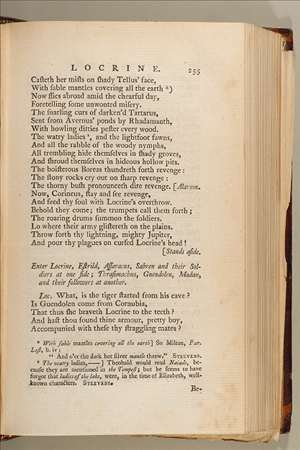 LOCRINE. 255
Caſteth her miſts on ſhady Tellus' face,
With ſable mantles covering all the earth ⁸)
Now flies abroad amid the chearful day,
Foretelling ſome unwonted miſery.
The ſnarling curs of darken'd Tartarus,
Sent from Avernus' ponds by Rhadamanth,
With howling ditties peſter every wood.
The watry ladies ⁹, and the lightfoot fawns,
And all the rabble of the woody nymphs,
All trembling hide themſelves in ſhady groves,
And ſhroud themſelves in hideous hollow pits.
The boiſterous Boreas thundreth forth revenge:
The ſtony rocks cry out on ſharp revenge:
The thorny buſh pronounceth dire revenge. [Alarum.
Now, Corineus, ſtay and ſee revenge,
And feed thy ſoul with Locrine's overthrow.
Behold they come; the trumpets call them forth;
The roaring drums ſummon the ſoldiers.
Lo where their army gliſtereth on the plains.
Throw forth thy lightning, mighty Jupiter,
And pour thy plagues on curſed Locrine's head!
[Stands aſide.
Enter Locrine, Eſtrild, Aſſaracus, Sabren and their Sol-
diers at one ſide; Thraſimachus, Guendolen, Madan,
and their followers at another.
Loc. What, is the tiger ſtarted from his cave?
Is Guendolen come from Cornubia,
That thus ſhe braveth Locrine to the teeth?
And haſt thou found thine armour, pretty boy,
Accompanied with theſe thy ſtraggling mates?
⁸ With ſable mantles covering all the earth] So Milton, Par.
Loſt, b. iv:
"And o'er the dark her ſilver mantle threw." STEEVENS.
⁹ The watry ladies,——] Theobald would read Naiads, be-
cauſe they are mentioned in the Tempeſt; but he ſeems to have
forgot that ladies of the lake, were, in the time of Elizabeth, well-
known characters. STEEVENS.
Be-